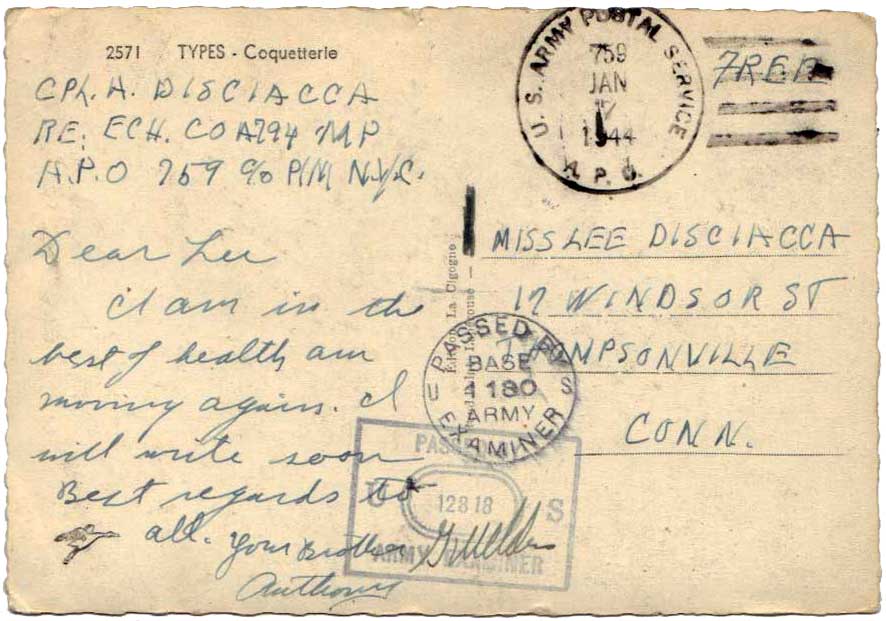 2571 TYPES - Coquetterie
CPL. A. DISCIACCA
RE: ECH. CO A794 MP
A.P.O 759 c/o P/M N.Y.C.
Dear Lee
I am in the
best of health am
moving again. I
will write soon
Best regards to
all. Your Brother
Anthony
U. S. ARMY POSTAL SERVICE
759
JAN
1944
A. P. O.
FREE
MISS LEE DISCIACCA
17 WINDSOR ST
THOMPSONVILLE
CONN.
Edition La Cigogne
PASSED BY
BASE
U 1180 S
ARMY
EXAMINER
U 12818 S
ARMY EXAMINER